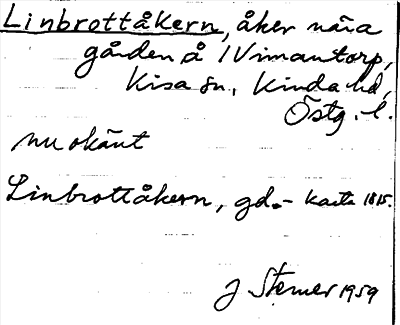 Linbrottåkern, åker nära
gården å Vimantorp,
Kisa sn., Kinda hd,
Östg. l.
nu okänt
Linbrottåkern, gd.- karta 1815.
J Sterner 1959